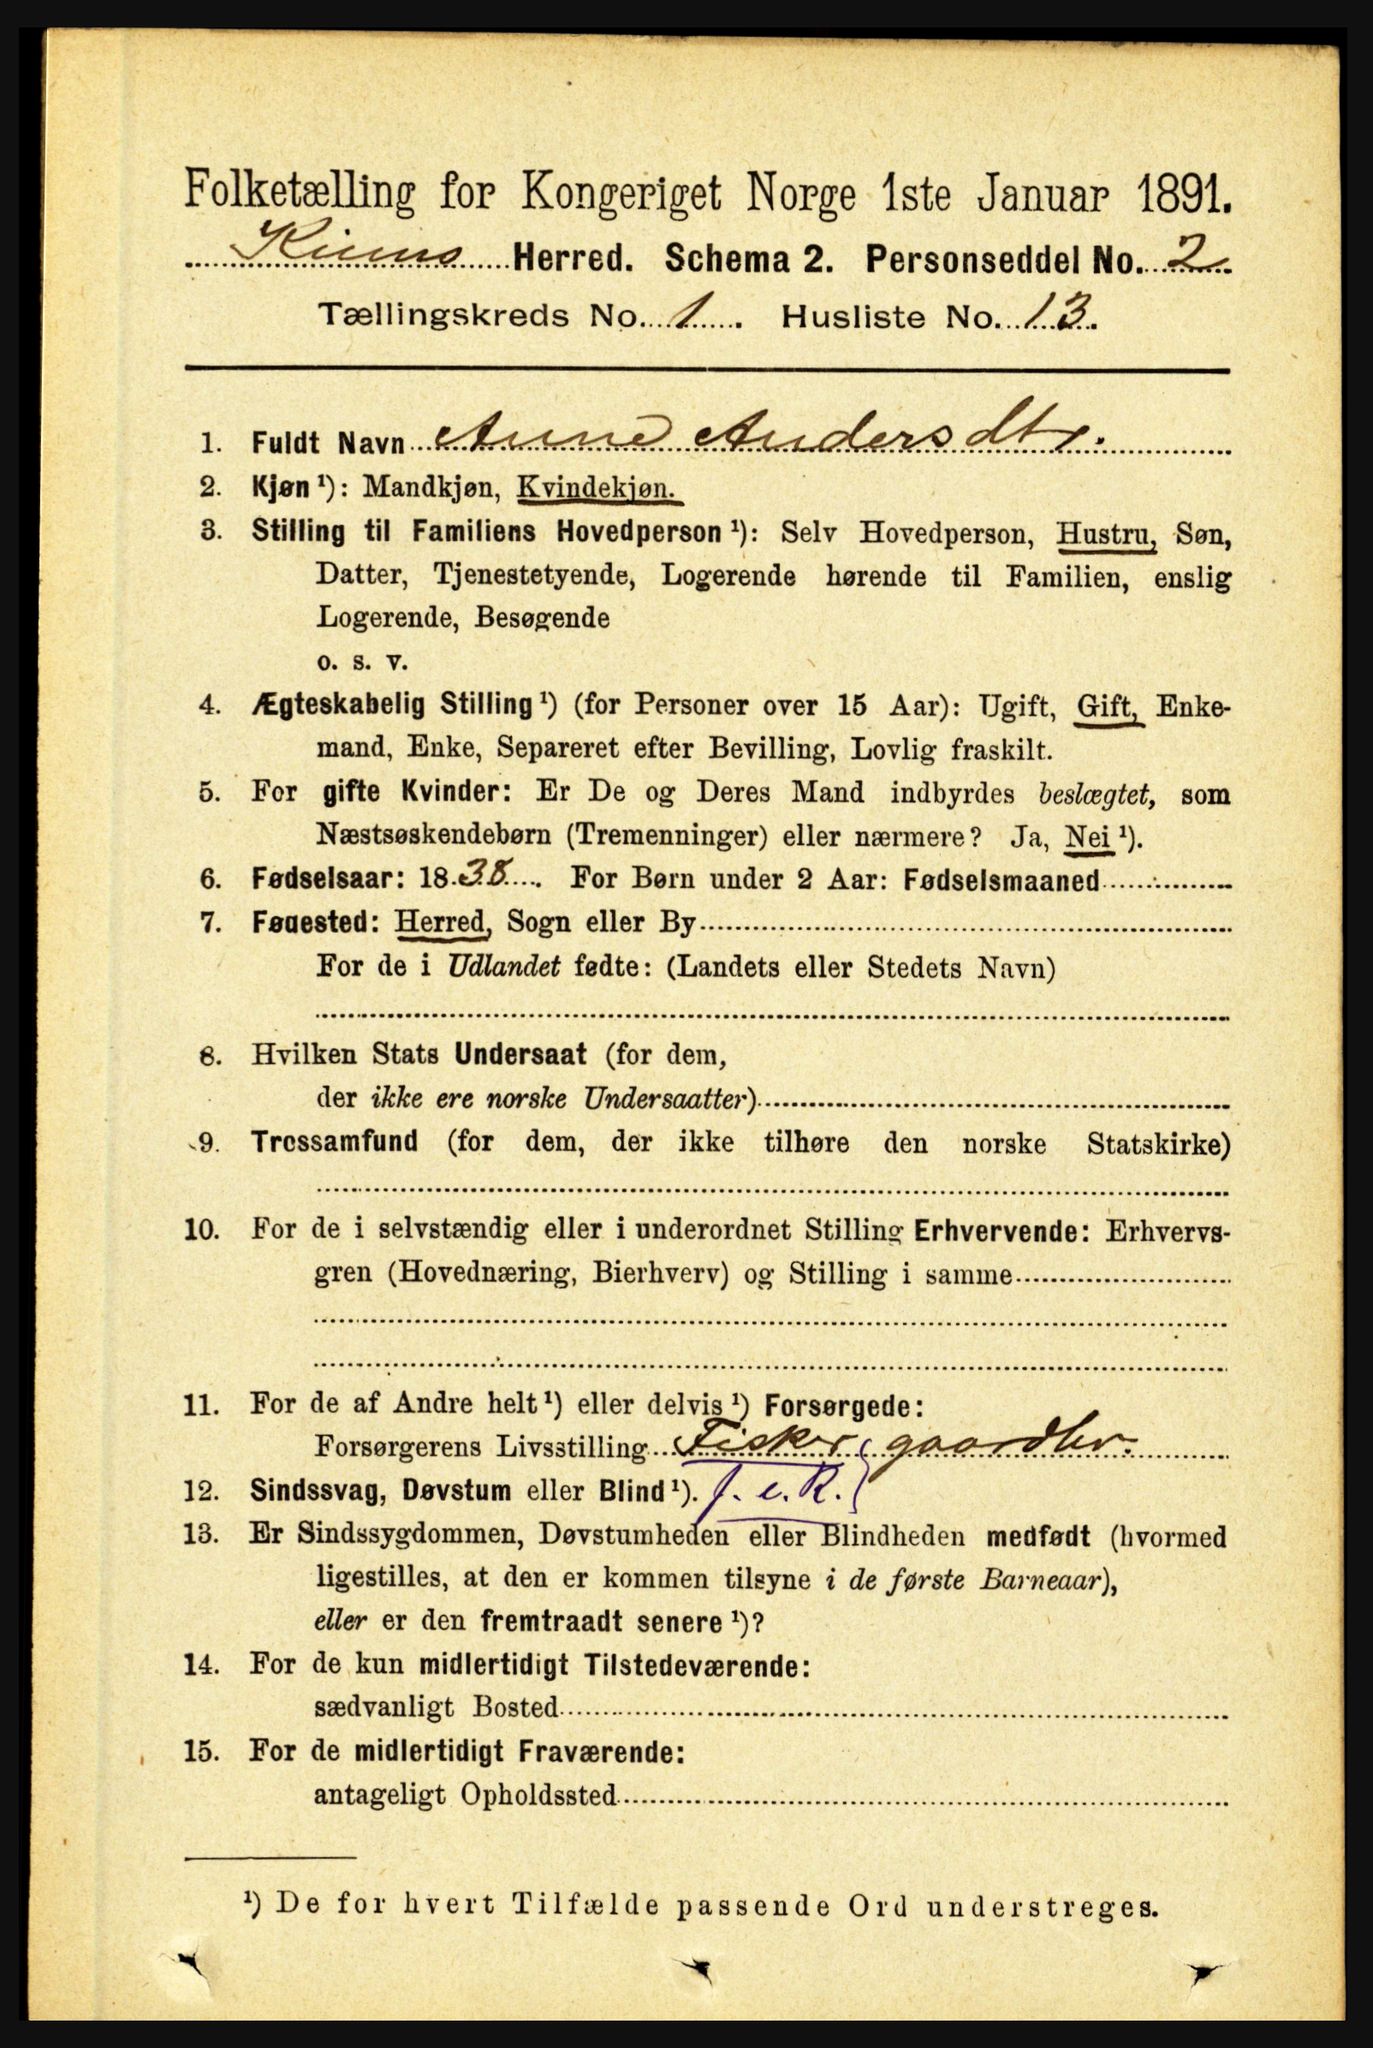 Folketælling for Kongeriget Norge 1ste Januar 1891.
Kinns Herred. Schema 2. Personseddel No. 2
Tællingskreds No. 1. Husliste No. 13.
1. Fuldt Navn Anne Andersdtr.
2. Kjøn ¹): Mandkjøn, Kvindekjøn.
3. Stilling til Familiens Hovedperson ¹): Selv Hovedperson, Hustru, Søn,
Datter, Tjenestetyende, Logerende hørende til Familien, enslig
Logerende, Besøgende
o. s. v.
4. Ægteskabelig Stilling ¹) (for Personer over 15 Aar): Ugift, Gift, Enke-
mand, Enke, Separeret efter Bevilling, Lovlig fraskilt.
5. For gifte Kvinder: Er De og Deres Mand indbyrdes beslægtet, som
Næstsøskendebørn (Tremenninger) eller nærmere? Ja, Nei ¹).
6. Fødselsaar: 1838. For Børn under 2 Aar: Fødselsmaaned
7. Fødested: Herred, Sogn eller By
For de i Udlandet fødte: (Landets eller Stedets Navn)
8. Hvilken Stats Undersaat (for dem,
der ikke ere norske Undersaatter)
9. Trossamfund (for dem, der ikke tilhøre den norske Statskirke)
10. For de i selvstændig eller i underordnet Stilling Erhvervende: Erhvervs-
gren (Hovednæring, Bierhverv) og Stilling i samme
11. For de af Andre helt ¹) eller delvis ¹) Forsørgede:
Forsørgerens Livsstilling Fisker gaardbr.
12. Sindssvag, Døvstum eller Blind ¹). f. e. R.
13. Er Sindssygdommen, Døvstumheden eller Blindheden medfødt (hvormed
ligestilles, at den er kommen tilsyne i de første Barneaar),
eller er den fremtraadt senere ¹)?
14. For de kun midlertidigt Tilstedeværende:
sædvanligt Bosted
15. For de midlertidigt Fraværende:
antageligt Opholdssted
¹) De for hvert Tilfælde passende Ord understreges.